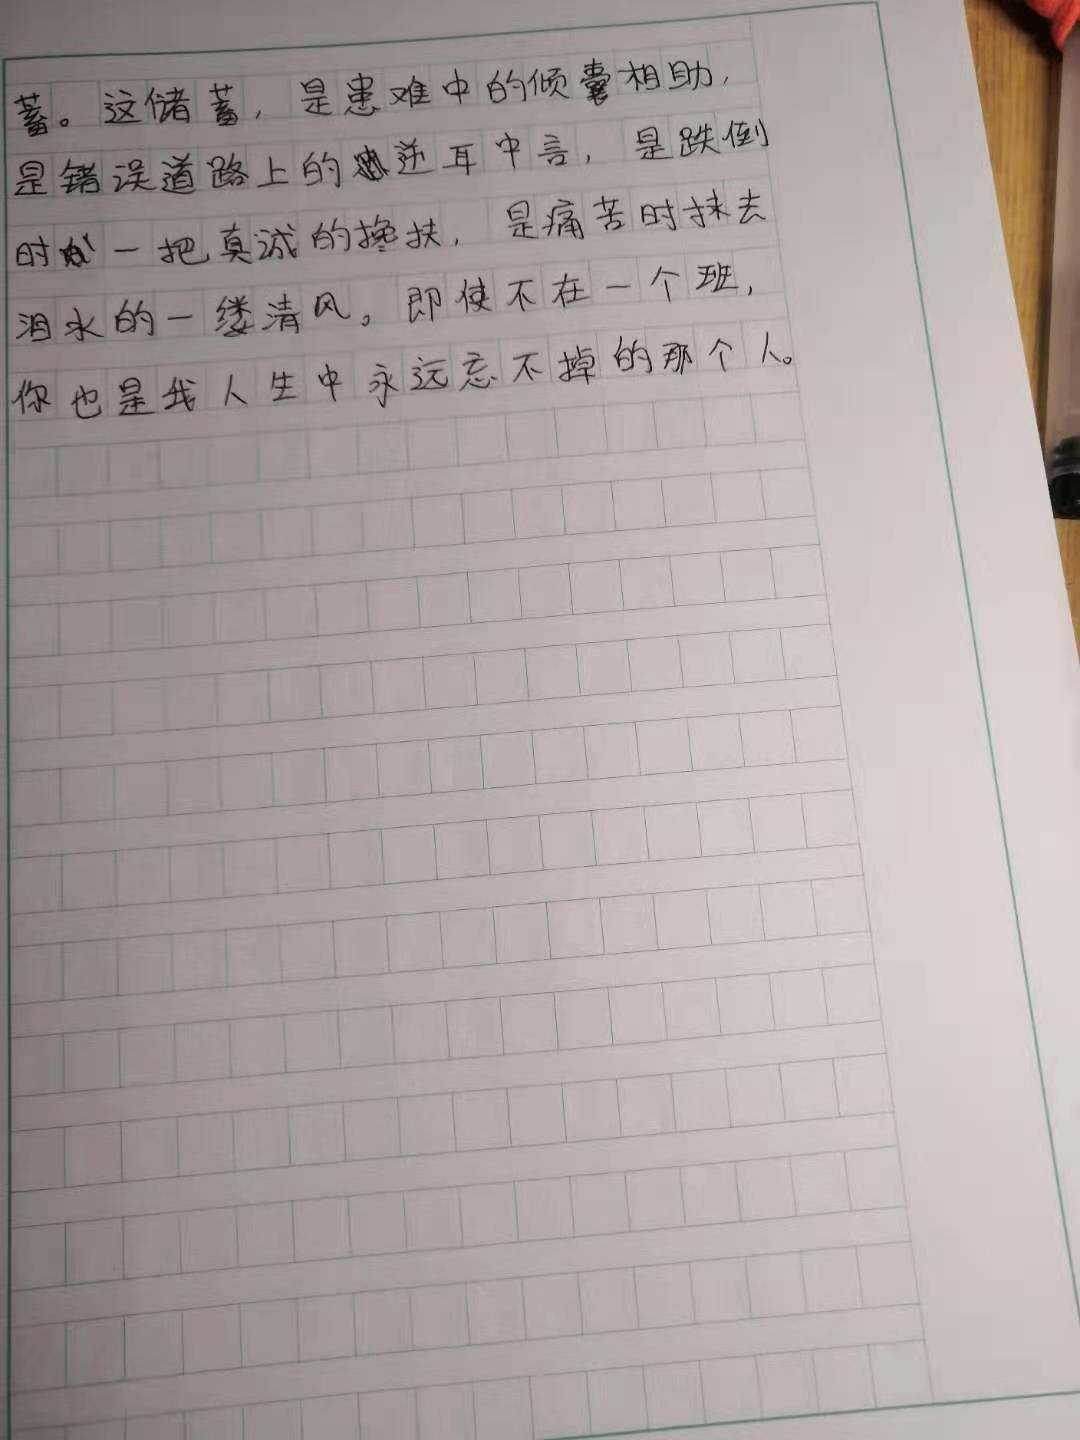 蓄。这储蓄，是患难中的倾囊相助，
是错误道路上的逆耳中言，是跌倒
时一把真诚的搀扶，是痛苦时抹去
泪水的一缕清风。即使不在一个班，
你也是我人生中永远忘不掉的那个人。